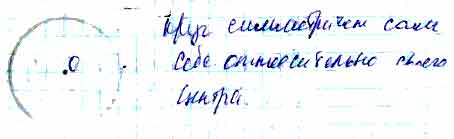 О
Круг симметричен сам
себе относительно своего
центра.